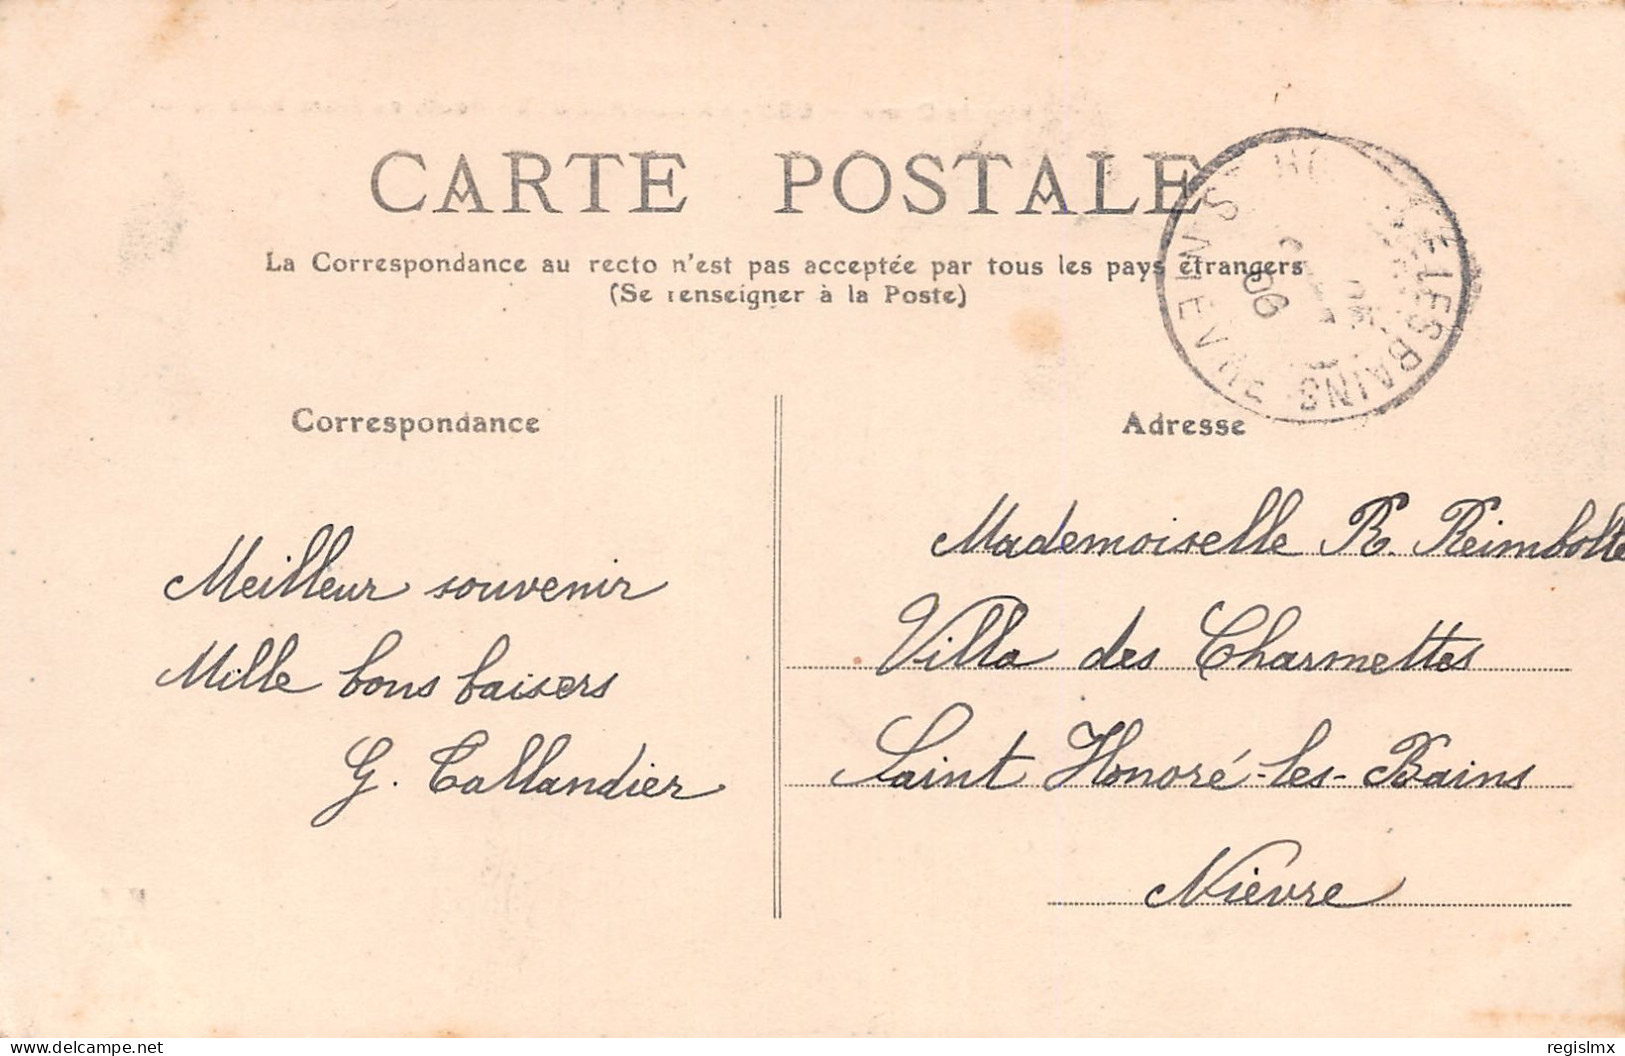 CARTE POSTALE
La Correspondance au recto n'est pas acceptée par tous les pays étrangers
(Se renseigner à la Poste)
Correspondance
Adresse
06
LES BAINS
NIEVRE
Meilleur souvenir
Mille bons baisers
G. Tallandier
Mademoiselle R. Reimbolte
Villa des Charmettes
Saint Honoré-les-Bains
Nièvre
delcampe.net
regislmx